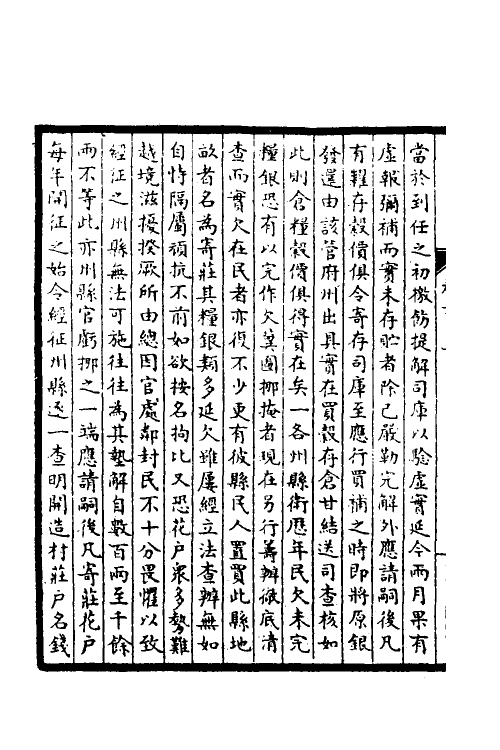 當於到任之初檄飭提解司庫以驗虛實延今兩月果有
虛報彌補而實未存貯者除已嚴勒完解外應請嗣後凡
有糶存穀價俱令寄存司庫至應行買補之時即將原銀
發還由該管府州出具實在買穀存倉甘結送司查核如
此則倉糧穀價俱得實在矣一各州縣衛歷年民欠未完
糧銀恐有以完作欠冀圖挪掩者現在另行籌辦徹底清
查而實欠在民者亦復不少更有彼縣民人置買此縣地
畝者名為寄莊其糧銀類多延欠雖屢經立法查辦無如
自恃隔屬頑抗不前如欲按名拘比又恐花戶衆多勢難
越境滋擾揆厥所由總因官處鄰封民不十分畏懼以致
經征之州縣無法可施往往為其墊解自數百兩至千餘
兩不等此亦州縣官虧挪之一端應請嗣後凡寄莊花戶
每年開征之始令經征州縣逐一查明開造村莊戶名錢